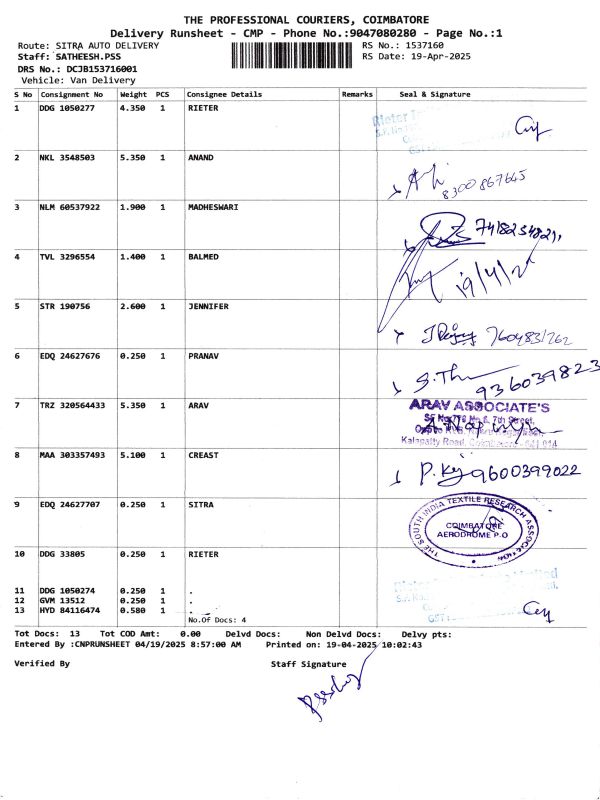 THE PROFESSIONAL COURIERS, COIMBATORE
Delivery Runsheet - CMP - Phone No.:9047080280 - Page No.:1
Route: SITRA AUTO DELIVERY
RS No.: 1537160
Staff: SATHEESH.PSS
RS Date: 19-Apr-2025
DRS No.: DCJB153716001
Vehicle: Van Delivery
S No Consignment No Weight PCS Consignee Details Remarks Seal & Signature
1 DDG 1050277 4.350 1 RIETER
2 NKL 3548503 5.350 1 ANAND
8300867645
3 NLM 60537922 1.900 1 MADHESWARI
4 TVL 3296554 1.400 1 BALMED
5 STR 190756 2.600 1 JENNIFER
6 EDQ 24627676 0.250 1 PRANAV
S.Th 936039823
7 TRZ 320564433 5.350 1 ARAV
ARAV ASSOCIATE'S
7th Street,
Kalapatty Road, Coimbatore - 641 014
8 MAA 303357493 5.100 1 CREAST
9600399022
9 EDQ 24627707 0.250 1 SITRA
THE SOUTH INDIA TEXTILE RESEARCH ASSOCIATION
COIMBATORE
AERODROME P.O
10 DDG 33805 0.250 1 RIETER
11 DDG 1050274 0.250 1 .
12 GVM 13512 0.250 1 .
13 HYD 84116474 0.580 1 .
No.Of Docs: 4
Tot Docs: 13 Tot COD Amt: 0.00 Delvd Docs: Non Delvd Docs: Delvy pts:
Entered By :CNPRUNSHEET 04/19/2025 8:57:00 AM Printed on: 19-04-2025 10:02:43
Verified By Staff Signature